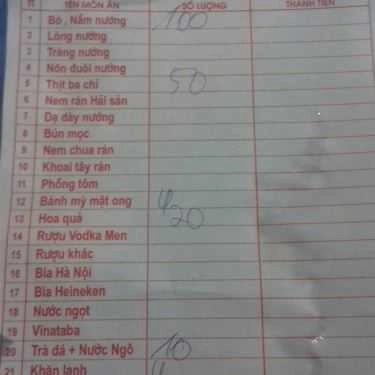 TT TÊN MÓN ĂN SỐ LƯỢNG THÀNH TIỀN
1 Bò, Nầm nướng 100
2 Lòng nướng
3 Tràng nướng
4 Nõn đuôi nướng
5 Thịt ba chỉ 50
6 Nem rán Hải sản
7 Dạ dày nướng
8 Bún mọc
9 Nem chua rán
10 Khoai tây rán
11 Phồng tôm
12 Bánh mỳ mật ong 4
13 Hoa quả 20
14 Rượu Vodka Men
15 Rượu khác
16 Bia Hà Nội
17 Bia Heineken
18 Nước ngọt
19 Vinataba
20 Trà đá + Nước Ngô 10
21 Khăn lạnh